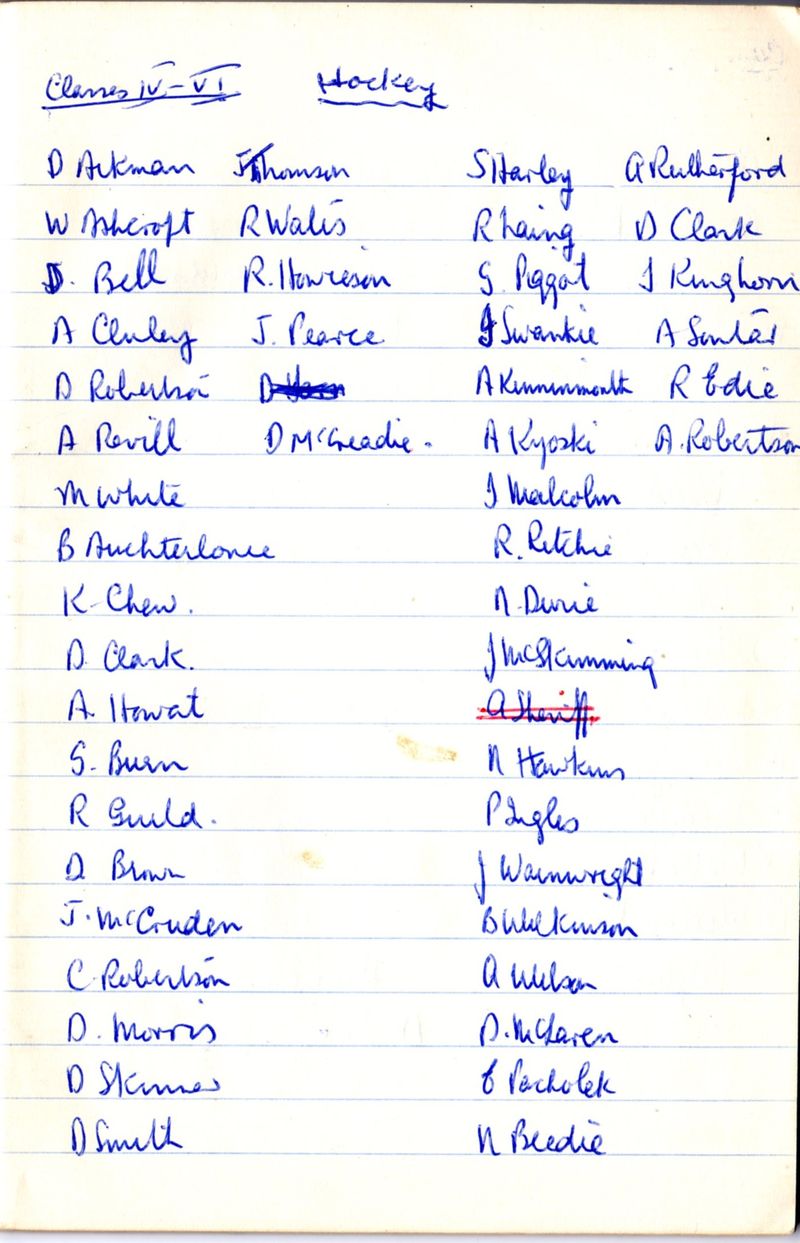 Classes IV-VI Hockey
D Aikman J Thomson S Harley A Rutherford
W Ashcroft R Walis R Laing D Clark
D. Bell R. Howieson G. Piggot J Kinghorn
A Cluley J. Pearce J Swankie A Soutar
D Robertson D A Kinninmonth R Edie
A Revill D McCreadie. A Kyoski A. Robertson
M White J Malcolm
B Auchterlonie R. Ritchie
K. Chew. N. Durie
D. Clark. J McSkimming
A. Howat A Sheriff
S. Burn N Hawkins
R Guild. P Ingles
D Brown J Wainwright
J. McCruden B Wilkinson
C. Robertson A Wilson
D. Morris D. McLaren
D Skinner E Pacholek
D Smith N Beedie